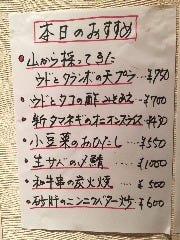 本日のおすすめ
・山から採ってきた
ウドとタランボの天プラ…¥750
・ウドとタコの酢みそあえ…¥700
・新タマネギのオニオンスライス…¥430
・小豆菜のおひたし…¥550
・生サバの〆鯖…¥1000
・和牛串の炭火焼…¥500
・砂肝のニンニクバター炒…¥600